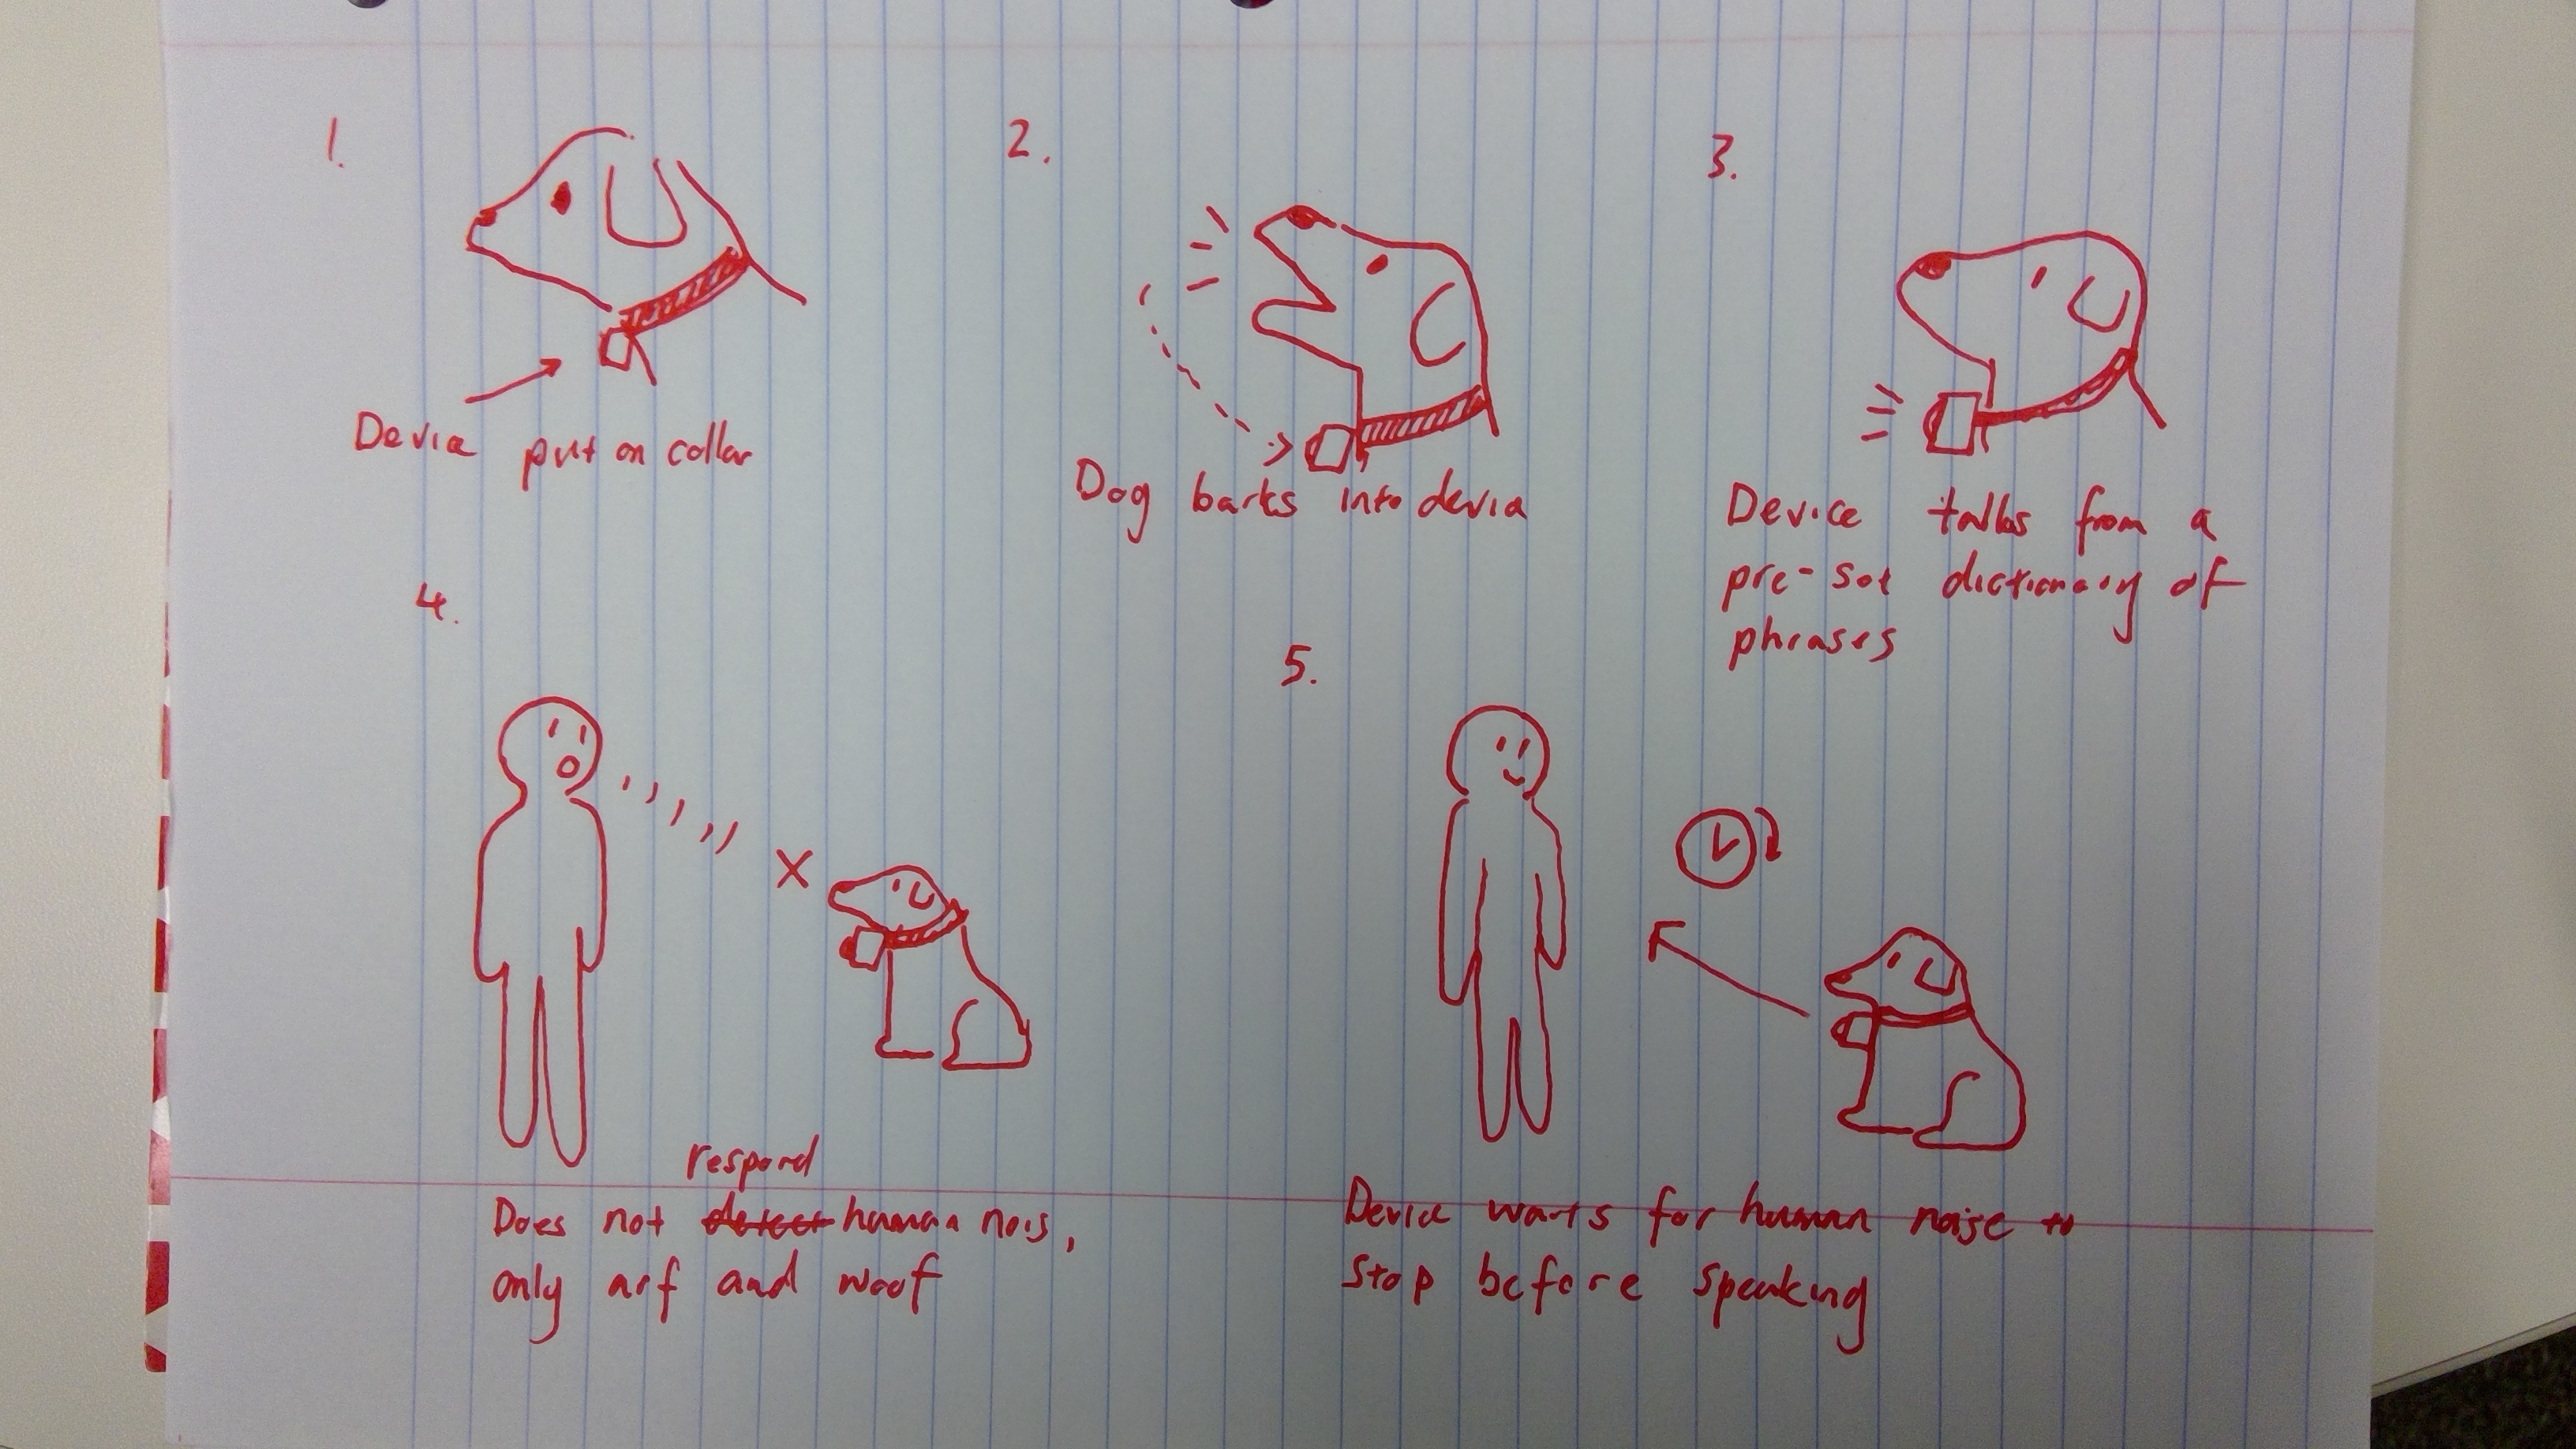 1.
Device put on collar
2.
Dog barks into device
3.
Device talks from a
pre-set dictionary of
phrases
4.
respond
Does not detect human nois,
only arf and woof
5.
Device waits for human noise to
stop before speaking